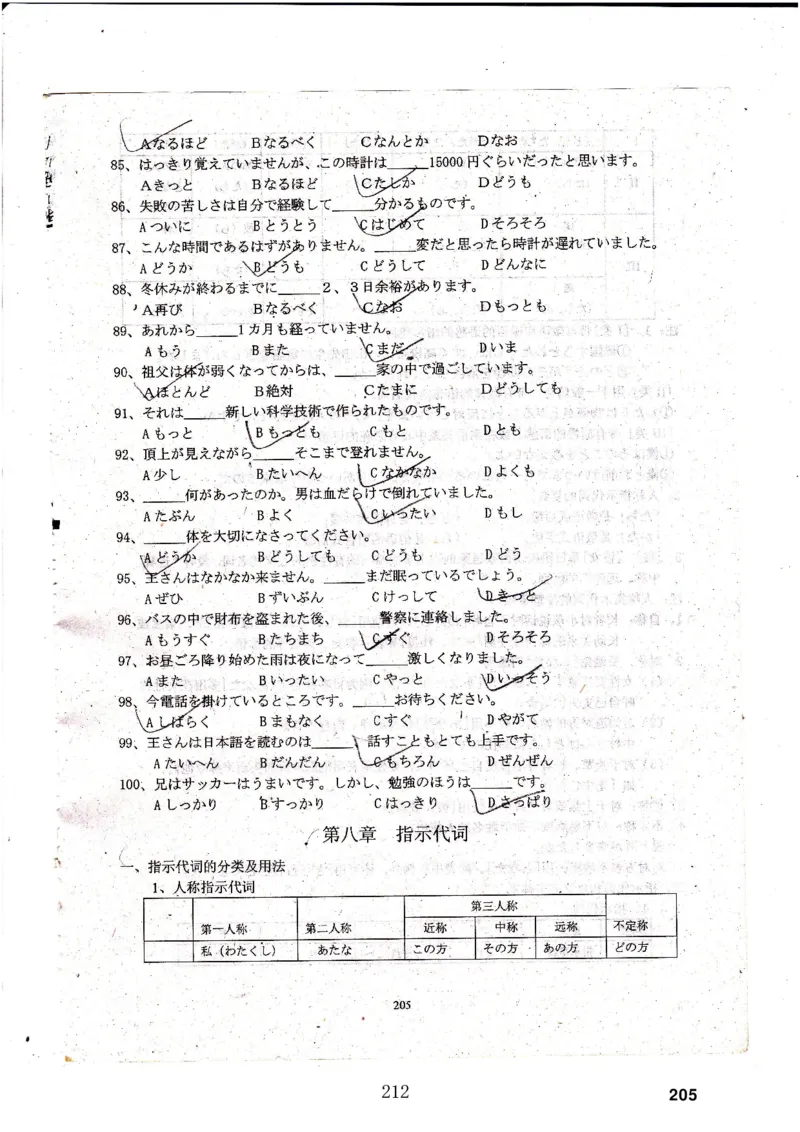 Aなるほど Bなるべく Cなんとか Dなお
85、はっきり覚えていませんが、この時計は____15000円ぐらいだったと思います。
Aきっと Bなるほど Cたしか Dどうも
86、失敗の苦しさは自分で経験して____分かるものです。
Aついに Bとうとう Cはじめて Dそろそろ
87、こんな時間であるはずがありません。____変だと思ったら時計が遅れていました。
Aどうか Bどうも Cどうして Dどんなに
88、冬休みが終わるまでに____2、3日余裕があります。
A再び Bなるべく Cなお Dもっとも
89、あれから____1カ月も経っていません。
Aもう Bまた Cまだ Dいま
90、祖父は体が弱くなってからは、____家の中で過ごしています。
Aほとんど B絶対 Cたまに Dどうしても
91、それは____新しい科学技術で作られたものです。
Aもっと Bもっとも Cもと Dとも
92、頂上が見えながら____そこまで登れません。
A少し Bたいへん Cなかなか Dよくも
93、____何があったのか。男は血だらけで倒れていました。
Aたぶん Bよく Cいったい Dもし
94、____体を大切になさってください。
Aどうか Bどうしても Cどうも Dどう
95、王さんはなかなか来ません。____まだ眠っているでしょう。
Aぜひ Bずいぶん Cけっして Dきっと
96、バスの中で財布を盗まれた後、____警察に連絡しました。
Aもうすぐ Bたちまち Cすぐ Dそろそろ
97、お昼ごろ降り始めた雨は夜になって____激しくなりました。
Aまた Bいったい Cやっと Dいっそう
98、今電話を掛けているところです。____お待ちください。
Aしばらく Bまもなく Cすぐ Dやがて
99、王さんは日本語を読むのは____、話すこともとても上手です。
Aたいへん Bだんだん Cもちろん Dぜんぜん
100、兄はサッカーはうまいです。しかし、勉強のほうは____です。
Aしっかり Bすっかり Cはっきり Dさっぱり
第八章 指示代词
一、指示代词的分类及用法
1、人称指示代词
第三人称
第一人称 第二人称 近称 中称 远称 不定称
私（わたくし） あたな この方 その方 あの方 どの方
205
212
205